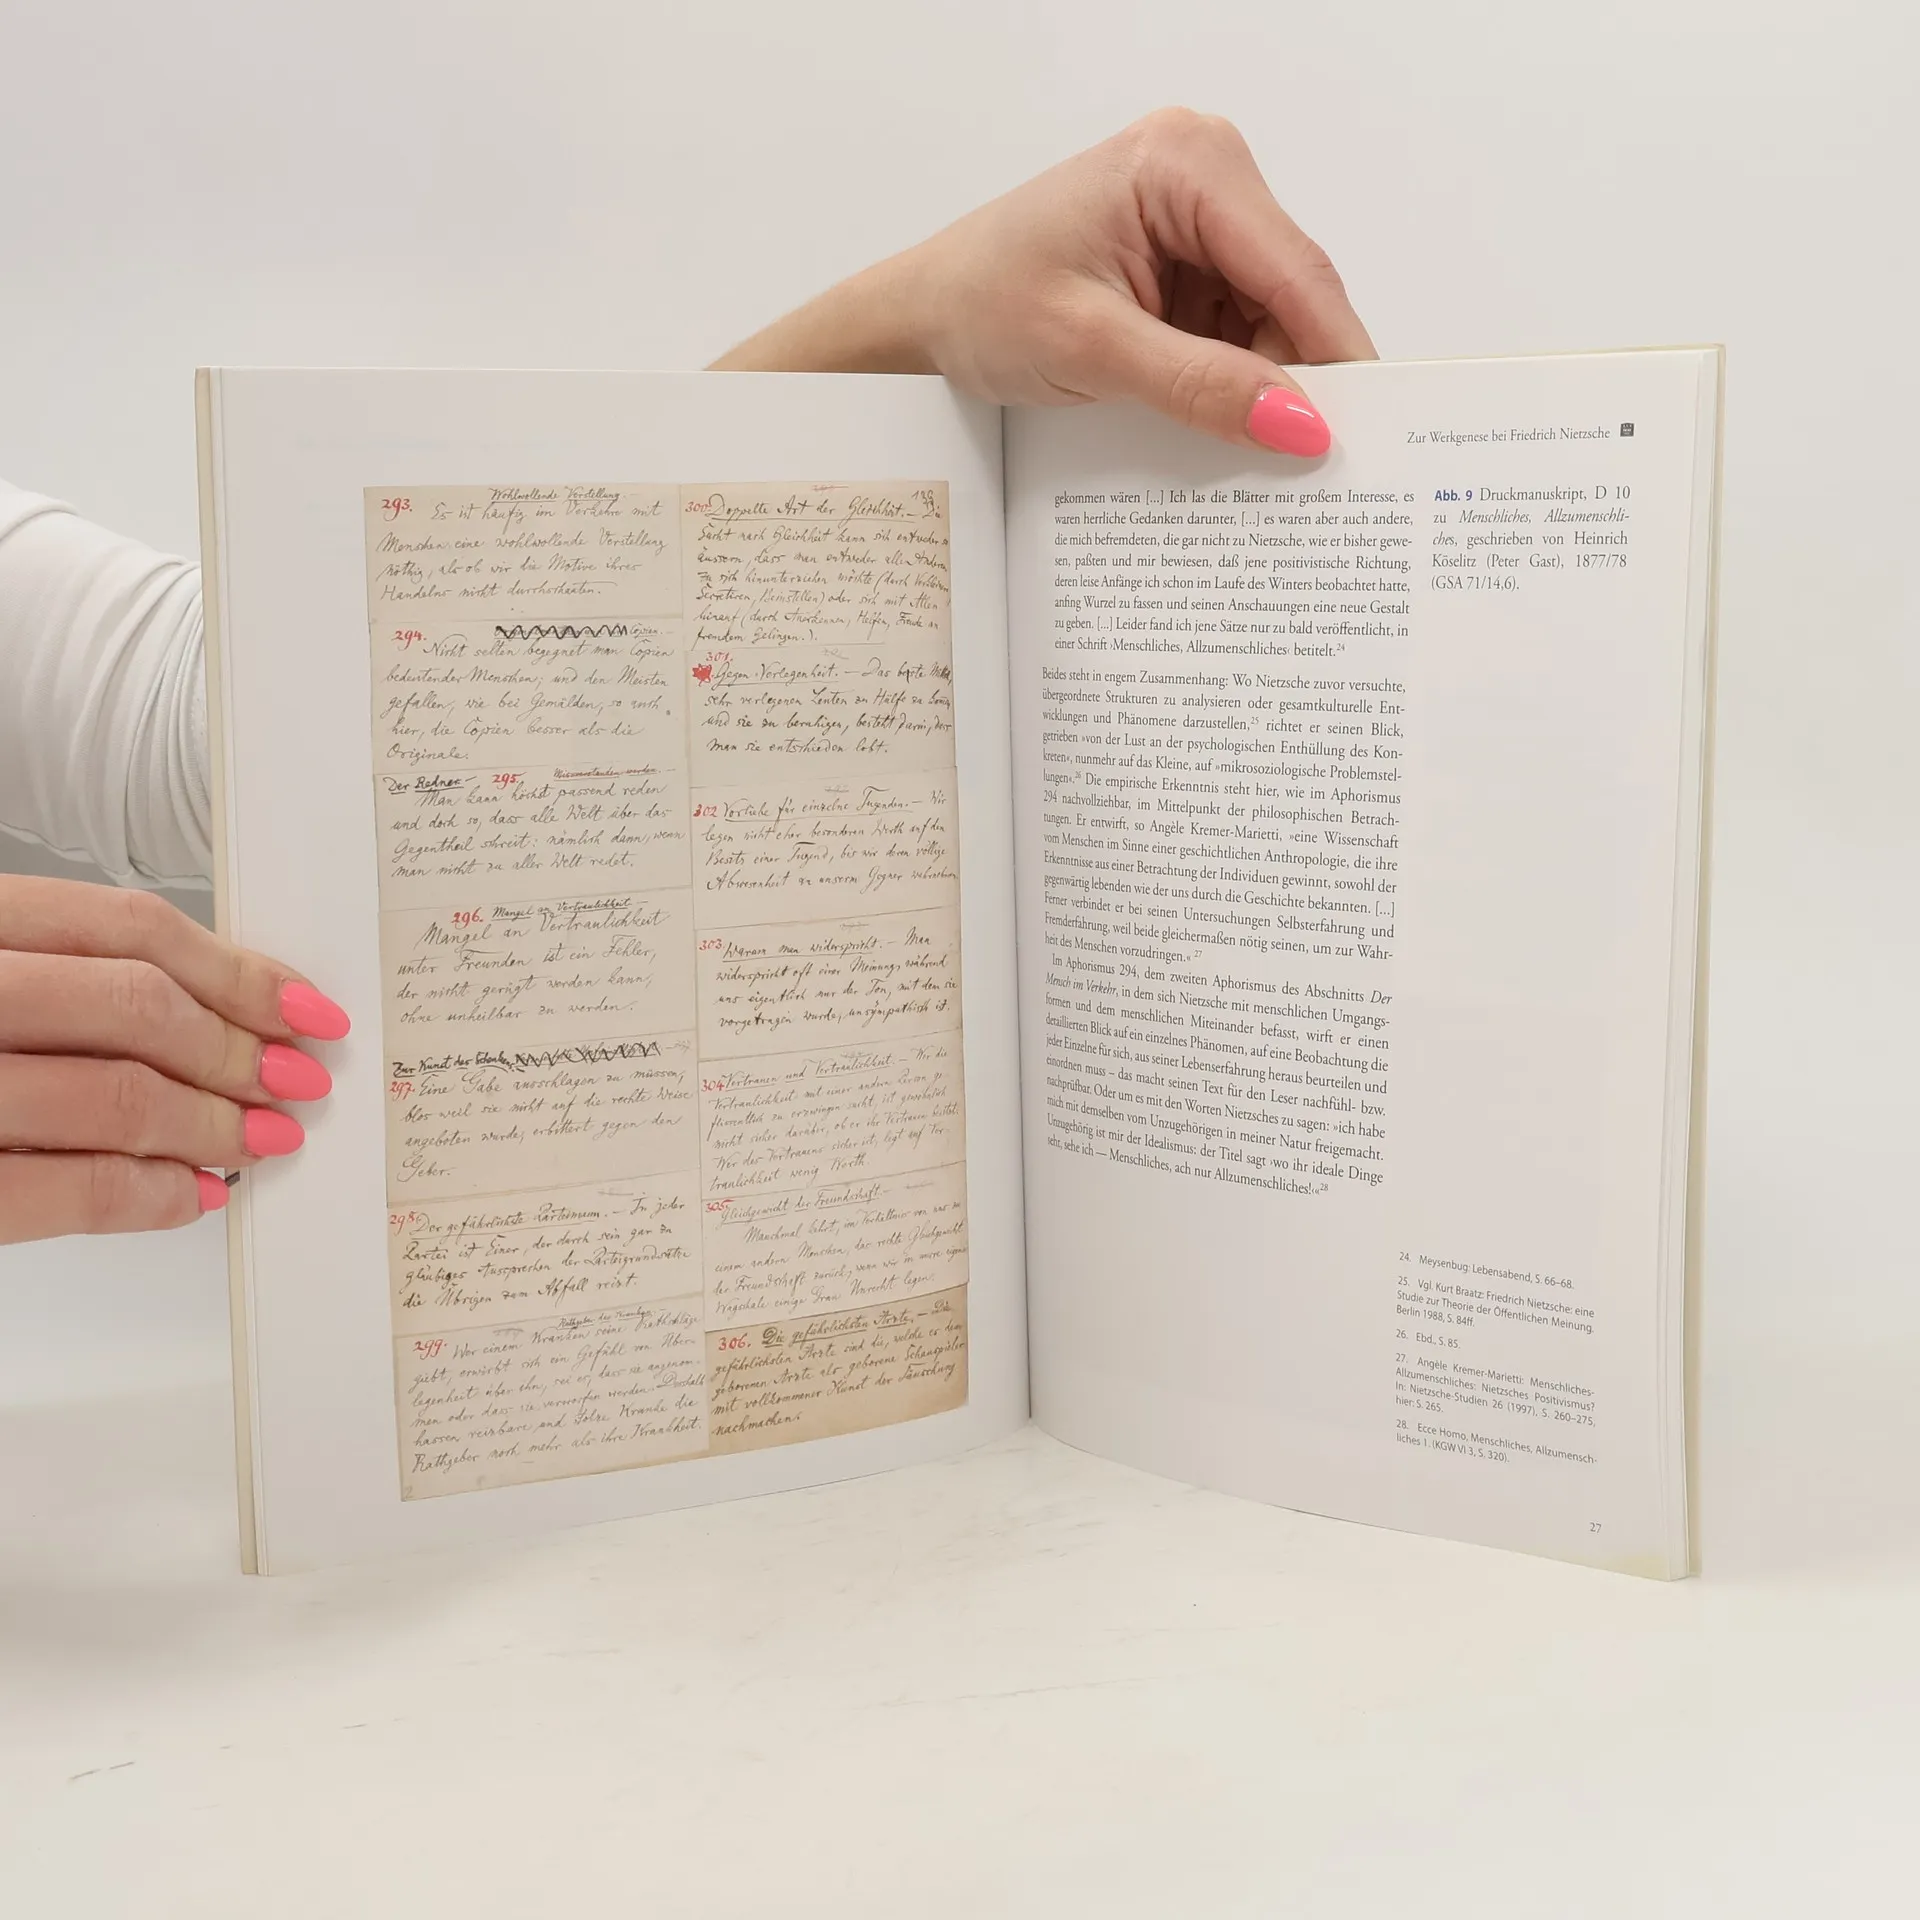 293. Wohlwollende Verstellung. —
Es ist häufig im Verkehre mit
Menschen eine wohlwollende Verstellung
nöthig, als ob wir die Motive ihres
Handelns nicht durchschauten.
294. Copien. —
Nicht selten begegnet man Copien
bedeutender Menschen; und den Meisten
gefallen, wie bei Gemälden, so auch
hier, die Copien besser als die
Originale.
Der Redner — 295. Missverstanden werden. —
Man kann höchst passend reden
und doch so, dass alle Welt über das
Gegentheil schreit: nämlich dann, wenn
man nicht zu aller Welt redet.
296. Mangel an Vertraulichkeit —
Mangel an Vertraulichkeit
unter Freunden ist ein Fehler,
der nicht gerügt werden kann,
ohne unheilbar zu werden.
Zur Kunst des Schenkens
297. Eine Gabe ausschlagen zu müssen,
blos weil sie nicht auf die rechte Weise
angeboten wurde, erbittert gegen den
Geber.
298. Der gefährlichste Parteimann. — In jeder
Partei ist Einer, der durch sein gar zu
gläubiges Aussprechen der Parteigrundsätze
die Übrigen zum Abfall reizt.
Rathgeber des Kranken. —
299. Wer einem Kranken seine Rathschläge
giebt, erwirbt sich ein Gefühl von Über-
legenheit über ihn, sei es, dass sie angenom-
men oder dass sie verworfen werden. Desshalb
hassen reizbare und stolze Kranke die
Rathgeber noch mehr als ihre Krankheit.
300. Doppelte Art der Gleichheit. — Die
Sucht nach Gleichheit kann sich entweder so
äussern, dass man entweder alle Anderen
zu sich hinunterziehen möchte (durch Verkleinern
Secretiren, Beinstellen) oder sich mit Allen
hinauf (durch Anerkennen, Helfen, Freude an
fremdem Gelingen.).
301.
Gegen Verlegenheit. — Das beste Mittel,
sehr verlegenen Leuten zu Hülfe zu kommen
und sie zu beruhigen, besteht darin, dass
man sie entschieden lobt.
302 Vorliebe für einzelne Tugenden. — Wir
legen nicht eher besonderen Werth auf den
Besitz einer Tugend, bis wir deren völlige
Abwesenheit an unserm Gegner wahrnehmen.
303. Warum man widerspricht. — Man
widerspricht oft einer Meinung, während
uns eigentlich nur der Ton, mit dem sie
vorgetragen wurde, unsympathisch ist.
304 Vertrauen und Vertraulichkeit. — Wer die
Vertraulichkeit mit einer andern Person ge-
flissentlich zu erzwingen sucht, ist gewöhnlich
nicht sicher darüber, ob er ihr Vertrauen besitzt.
Wer des Vertrauens sicher ist, legt auf Ver-
traulichkeit wenig Werth.
305. Gleichgewicht der Freundschaft. —
Manchmal kehrt, im Verhältniss von uns zu
einem andern Menschen, das rechte Gleichgewicht
der Freundschaft zurück, wenn wir in unsre eigene
Wagschale einige Gran Unrecht legen.
306. Die gefährlichsten Ärzte. — Die
gefährlichsten Ärzte sind die, welche es dem
geborenen Arzte als geborene Schauspieler
mit vollkommener Kunst der Täuschung
nachmachen.
Zur Werkgenese bei Friedrich Nietzsche
gekommen wären [...] Ich las die Blätter mit großem Interesse, es
waren herrliche Gedanken darunter, [...] es waren aber auch andere,
die mich befremdeten, die gar nicht zu Nietzsche, wie er bisher gewe-
sen, paßten und mir bewiesen, daß jene positivistische Richtung,
deren leise Anfänge ich schon im Laufe des Winters beobachtet hatte,
anfing Wurzel zu fassen und seinen Anschauungen eine neue Gestalt
zu geben. [...] Leider fand ich jene Sätze nur zu bald veröffentlicht, in
einer Schrift ›Menschliches, Allzumenschliches‹ betitelt.24
Beides steht in engem Zusammenhang: Wo Nietzsche zuvor versuchte,
übergeordnete Strukturen zu analysieren oder gesamtkulturelle Ent-
wicklungen und Phänomene darzustellen,25 richtet er seinen Blick,
getrieben »von der Lust an der psychologischen Enthüllung des Kon-
kreten«, nunmehr auf das Kleine, auf »mikrosoziologische Problemstel-
lungen«.26 Die empirische Erkenntnis steht hier, wie im Aphorismus
294 nachvollziehbar, im Mittelpunkt der philosophischen Betrach-
tungen. Er entwirft, so Angèle Kremer-Marietti, »eine Wissenschaft
vom Menschen im Sinne einer geschichtlichen Anthropologie, die ihre
Erkenntnisse aus einer Betrachtung der Individuen gewinnt, sowohl der
gegenwärtig lebenden wie der uns durch die Geschichte bekannten. [...]
Ferner verbindet er bei seinen Untersuchungen Selbsterfahrung und
Fremderfahrung, weil beide gleichermaßen nötig seinen, um zur Wahr-
heit des Menschen vorzudringen.«27
Im Aphorismus 294, dem zweiten Aphorismus des Abschnitts Der
Mensch im Verkehr, in dem sich Nietzsche mit menschlichen Umgangs-
formen und dem menschlichen Miteinander befasst, wirft er einen
detaillierten Blick auf ein einzelnes Phänomen, auf eine Beobachtung die
jeder Einzelne für sich, aus seiner Lebenserfahrung heraus beurteilen und
einordnen muss – das macht seinen Text für den Leser nachfühl- bzw.
nachprüfbar. Oder um es mit den Worten Nietzsches zu sagen: »ich habe
mich mit demselben vom Unzugehörigen in meiner Natur freigemacht.
Unzugehörig ist mir der Idealismus: der Titel sagt ›wo ihr ideale Dinge
seht, sehe ich — Menschliches, ach nur Allzumenschliches!‹«28
Abb. 9 Druckmanuskript, D 10
zu Menschliches, Allzumenschli-
ches, geschrieben von Heinrich
Köselitz (Peter Gast), 1877/78
(GSA 71/14,6).
24. Meysenbug: Lebensabend, S. 66–68.
25. Vgl. Kurt Braatz: Friedrich Nietzsche: eine
Studie zur Theorie der Öffentlichen Meinung.
Berlin 1988, S. 84ff.
26. Ebd., S. 85.
27. Angèle Kremer-Marietti: Menschliches-
Allzumenschliches: Nietzsches Positivismus?
In: Nietzsche-Studien 26 (1997), S. 260–275,
hier: S. 265.
28. Ecce Homo, Menschliches, Allzumensch-
liches 1. (KGW VI 3, S. 320).
27